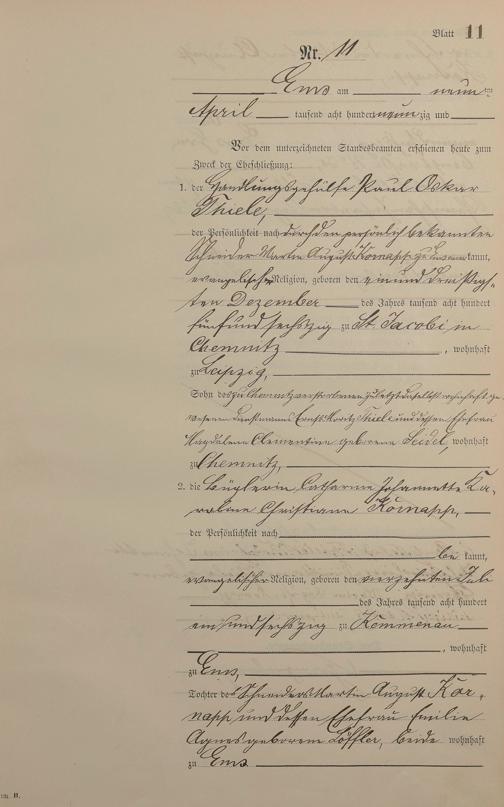 Blatt 11
Nr. 11
Ems am neunten
April tausend acht hundert neunzig und
Vor dem unterzeichneten Standesbeamten erschienen heute zum
Zweck der Eheschließung:
1. der Handlungsgehülfe Paul Oskar
Thiele,
der Persönlichkeit nach durch den persönlich bekannten
Schneider Martin August Kornapp zu kannt,
evangelischer Religion, geboren den einund dreißigs-
ten Dezember des Jahres tausend acht hundert
fünfundsechszig zu St. Jacobi in
Chemnitz , wohnhaft
zu Leipzig,
Sohn des zu Chemnitz verstorbenen zuletzt daselbst wohnhaft ge-
wesenen Ernst Moritz Thiele und dessen Ehefrau
Magdalena Clementine geborene Seidel, wohnhaft
zu Chemnitz,
2. die Büglerin Catharine Johannette Ka-
roline Christiane Kornapp,
der Persönlichkeit nach
be kannt,
evangelischer Religion, geboren den vierzehnten Juli
des Jahres tausend acht hundert
einundsechszig zu Kemmenau
, wohnhaft
zu Ems,
Tochter des Schneiders Martin August Kor-
napp und dessen Ehefrau Emilie
Agnes geborene Löffler, beide wohnhaft
zu Ems